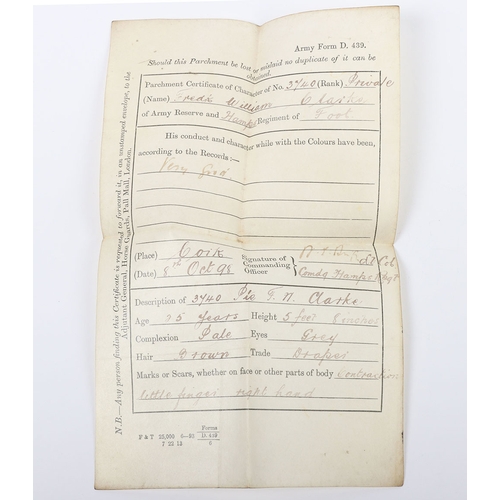 Army Form D. 439.
Should this Parchment be lost or mislaid no duplicate of it can be
obtained.
Parchment Certificate of Character of No. 3740 (Rank) Private
(Name) Fredk William Clarke
of Army Reserve and Hamps Regiment of Foot
His conduct and character while with the Colours have been,
according to the Records :—
Very Good
(Place) Cork
(Date) 8th Oct 98
Signature of
Commanding
Officer
Lt Col
Comdg Hamps Regt
Description of 3740 Pte F. W. Clarke
Age 25 Years Height 5 feet 8 inches
Complexion Pale Eyes Grey
Hair Brown Trade Draper
Marks or Scars, whether on face or other parts of body Contraction
little finger right hand
Forms
D. 439
N.B.—Any person finding this Certificate is requested to forward it, in an unstamped envelope, to the
Adjutant General, Horse Guards, Pall Mall, London.